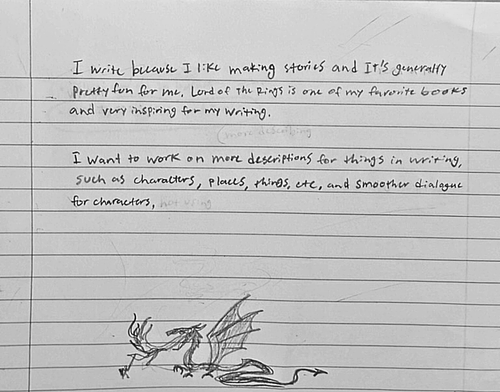 I write because I like making stories and It's generally
Pretty fun for me. Lord of the Rings is one of my favorite books
and very inspiring for my writing.
(more describing
I want to work on more descriptions for things in writing,
such as characters, places, things, etc, and smoother dialogue
for characters, not using